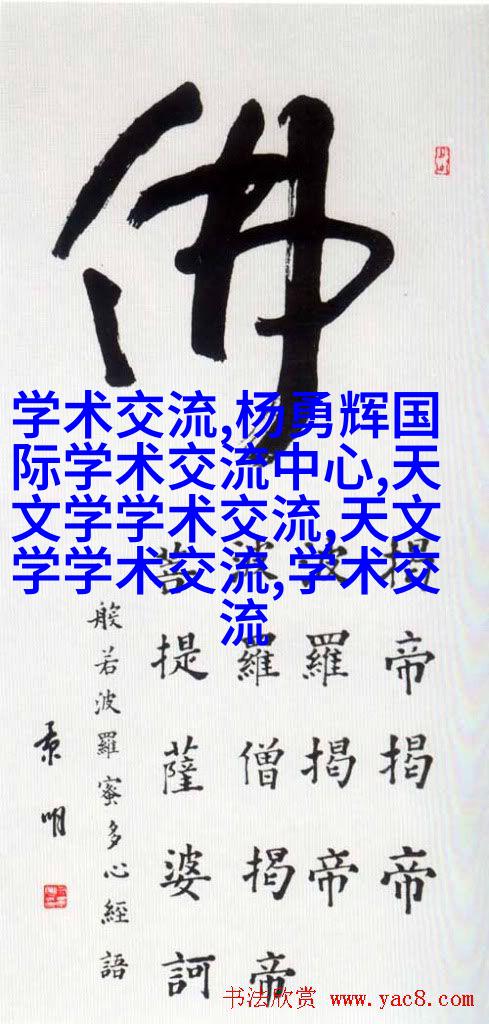 佛
学术交流,杨勇辉国
际学术交流中心,天
文学学术交流,天文
学学术交流,学术交
流
揭帝揭帝
波羅揭帝
波羅僧揭帝
菩提薩婆訶
般若波羅蜜多心經語
书法欣赏 www.yac8.com